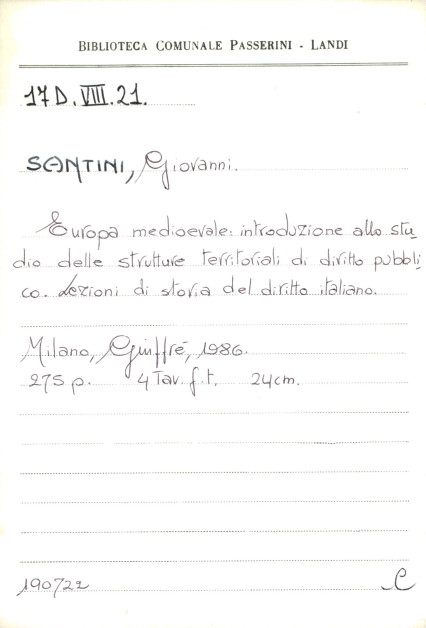 BIBLIOTECA COMUNALE PASSERINI - LANDI
17D.VIII.21.
SANTINI, Giovanni.
Europa medioevale: introduzione allo stu_
dio delle strutture territoriali di diritto pubbli_
co. Lezioni di storia del diritto italiano.
Milano, Giuffré, 1986.
275 p. 4 Tav. f.t. 24cm.
190722 C